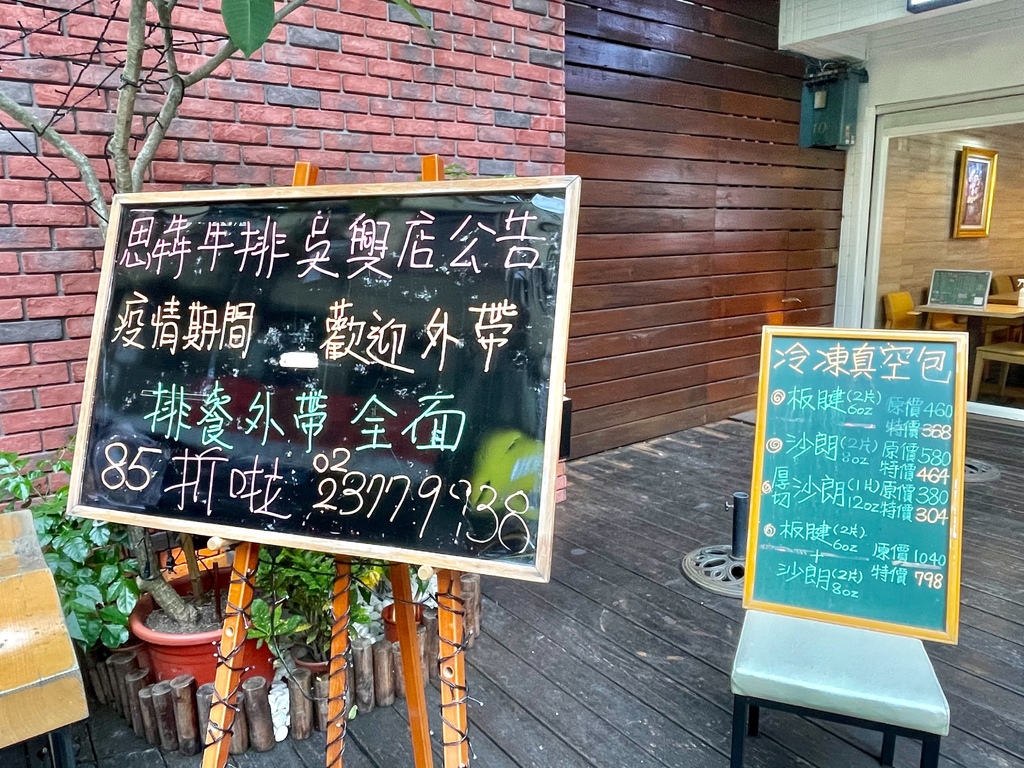 恩犇牛排吳興店公告
疫情期間 歡迎外帶
排餐外帶全面
85折啦 02 23779938
冷凍真空包
板腱(2片)6oz 原價460
特價368
沙朗(2片)8oz 原價580
特價464
厚切沙朗(1片)12oz 原價380
特價304
板腱(2片)6oz
+ 原價1040
沙朗(2片)8oz 特價798